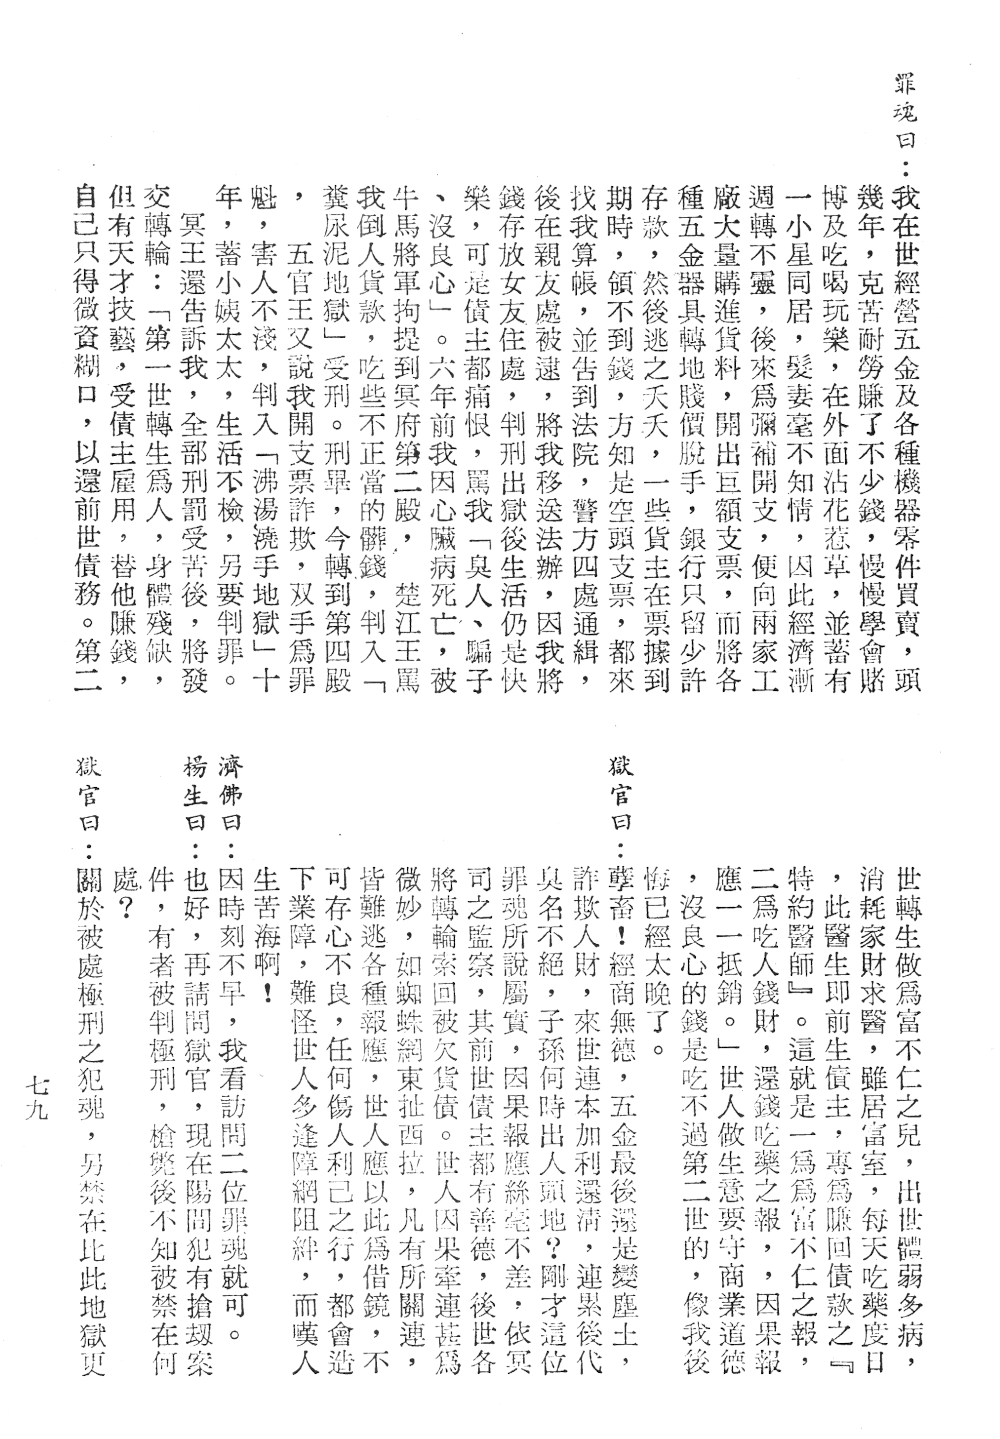 罪魂曰：我在世經營五金及各種機器零件買賣，頭
幾年，克苦耐勞賺了不少錢，慢慢學會賭
博及吃喝玩樂，在外面沾花惹草，並蓄有
一小星同居，髮妻毫不知情，因此經濟漸
週轉不靈，後來爲彌補開支，便向兩家工
廠大量購進貨料，開出巨額支票，而將各
種五金器具轉地賤價脫手，銀行只留少許
存款，然後逃之夭夭，一些貨主在票據到
期時，領不到錢，方知是空頭支票，都來
找我算帳，並告到法院，警方四處通緝，
後在親友處被逮，將我移送法辦，因我將
錢存放女友住處，判刑出獄後生活仍是快
樂，可是債主都痛恨，罵我「臭人、騙子
、沒良心」。六年前我因心臟病死亡，被
牛馬將軍拘提到冥府第二殿，楚江王罵
我倒人貨款，吃些不正當的髒錢，判入「
糞尿泥地獄」受刑。刑畢，今轉到第四殿
，五官王又說我開支票詐欺，双手爲罪
魁，害人不淺，判入「沸湯澆手地獄」十
年，蓄小姨太太，生活不檢，另要判罪。
冥王還告訴我，全部刑罰受苦後，將發
交轉輪：「第一世轉生爲人，身體殘缺，
但有天才技藝，受債主雇用，替他賺錢，
自己只得微資糊口，以還前世債務。第二
世轉生做爲富不仁之兒，出世體弱多病，
消耗家財求醫，雖居富室，每天吃藥度日
，此醫生即前生債主，專爲賺回債款之『
特約醫師』。這就是一爲爲富不仁之報，
二爲吃人錢財，還錢吃藥之報，因果報
應一一抵銷。」世人做生意要守商業道德
，沒良心的錢是吃不過第二世的，像我後
悔已經太晚了。
獄官曰：孽畜！經商無德，五金最後還是變塵土，
詐欺人財，來世連本加利還清，連累後代
臭名不絕，子孫何時出人頭地？剛才這位
罪魂所說屬實，因果報應絲毫不差，依冥
司之監察，其前世債主都有善德，後世各
將轉輪索回被欠貨債。世人因果牽連甚爲
微妙，如蜘蛛網東扯西拉，凡有所關連，
皆難逃各種報應，世人應以此爲借鏡，不
可存心不良，任何傷人利己之行，都會造
下業障，難怪世人多逢障網阻絆，而嘆人
生苦海啊！
濟佛曰：因時刻不早，我看訪問二位罪魂就可。
楊生曰：也好，再請問獄官，現在陽間犯有搶刼案
件，有者被判極刑，槍斃後不知被禁在何
處？
獄官曰：關於被處極刑之犯魂，另禁在比此地獄更
七九